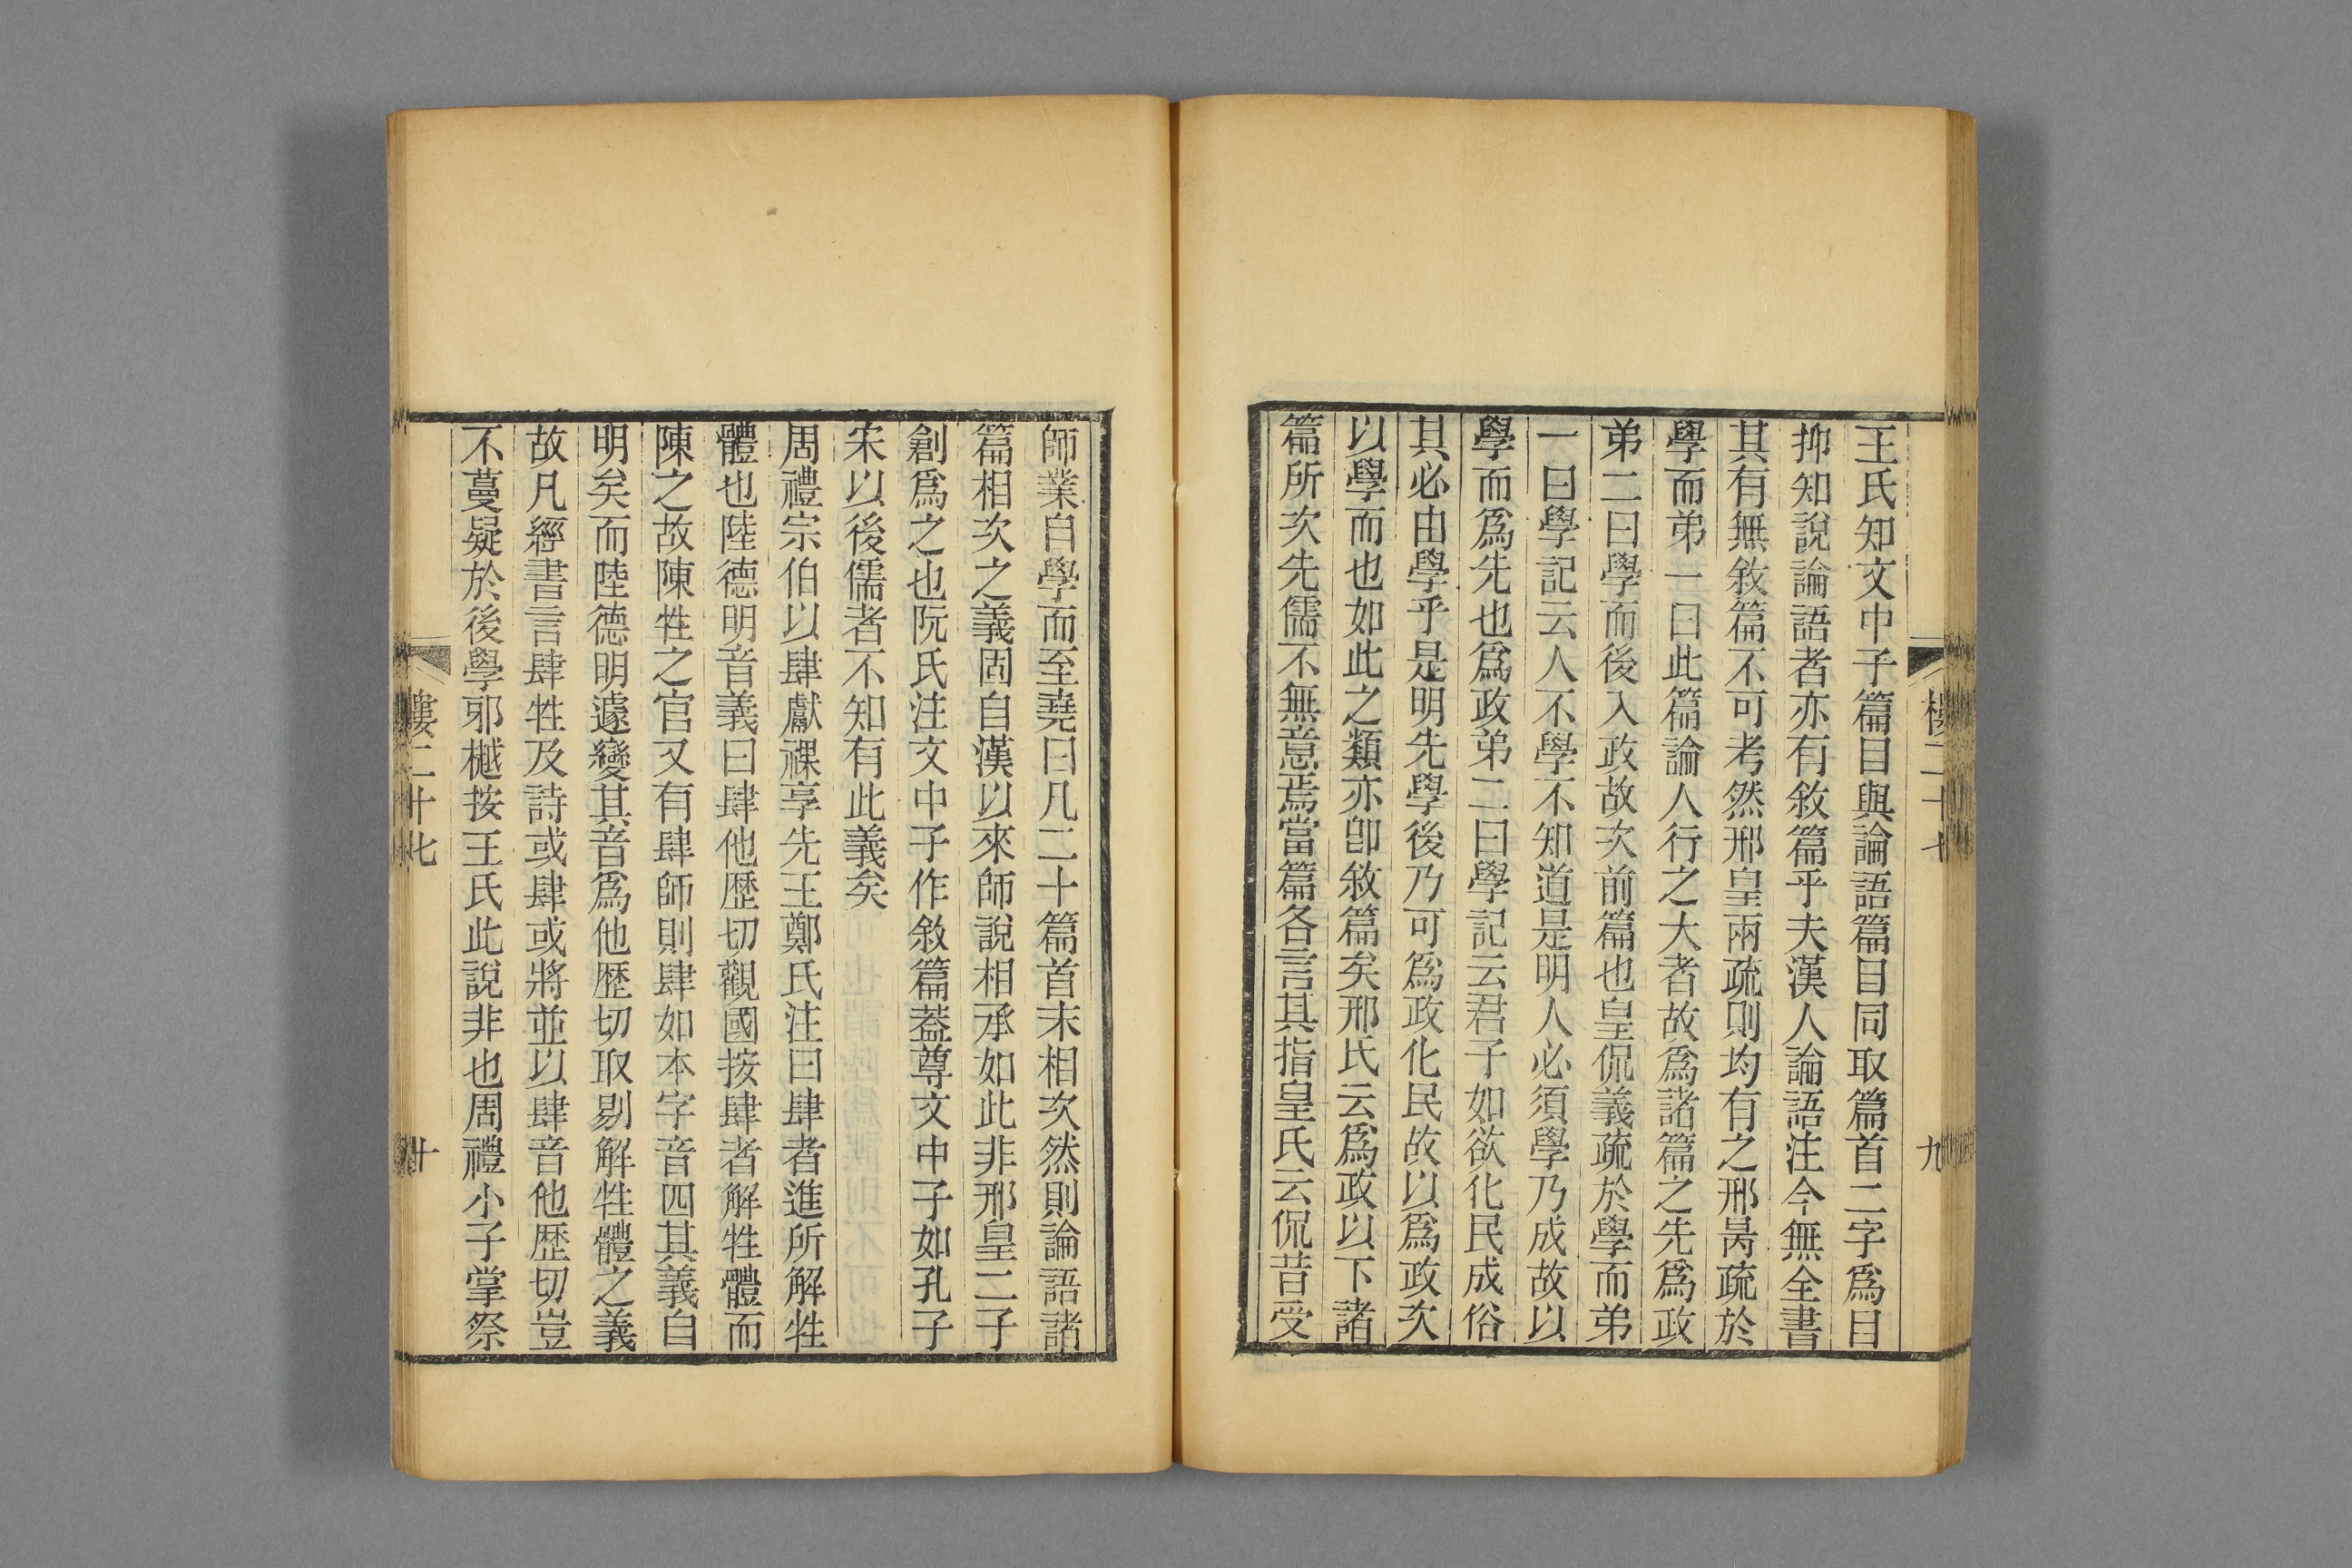 王氏知文中子篇目與論語篇目同取篇首二字爲目
抑知說論語者亦有敘篇乎夫漢人論語注今無全書
其有無敘篇不可考然邢皇兩疏則均有之邢昺疏於
學而弟一曰此篇論人行之大者故爲諸篇之先爲政
弟二曰學而後入政故次前篇也皇侃義疏於學而弟
一曰學記云人不學不知道是明人必須學乃成故以
學而爲先也爲政弟二曰學記云君子如欲化民成俗
其必由學乎是明先學後乃可爲政化民故以爲政次
以學而也如此之類亦卽敘篇矣邢氏云爲政以下諸
篇所次先儒不無意焉當篇各言其指皇氏云侃昔受
九
師業自學而至堯曰凡二十篇首末相次然則論語諸
篇相次之義固自漢以來師說相承如此非邢皇二子
創爲之也阮氏注文中子作敘篇葢尊文中子如孔子
宋以後儒者不知有此義矣
周禮宗伯以肆獻祼享先王鄭氏注曰肆者進所解牲
體也陸德明音義曰肆他歴切觀國按肆者解牲體而
陳之故陳牲之官又有肆師則肆如本字音四其義自
明矣而陸德明遽變其音爲他歴切取剔解牲體之義
故凡經書言肆牲及詩或肆或將並以肆音他歴切豈
不蔓疑於後學邪樾按王氏此說非也周禮小子掌祭
二十七
十